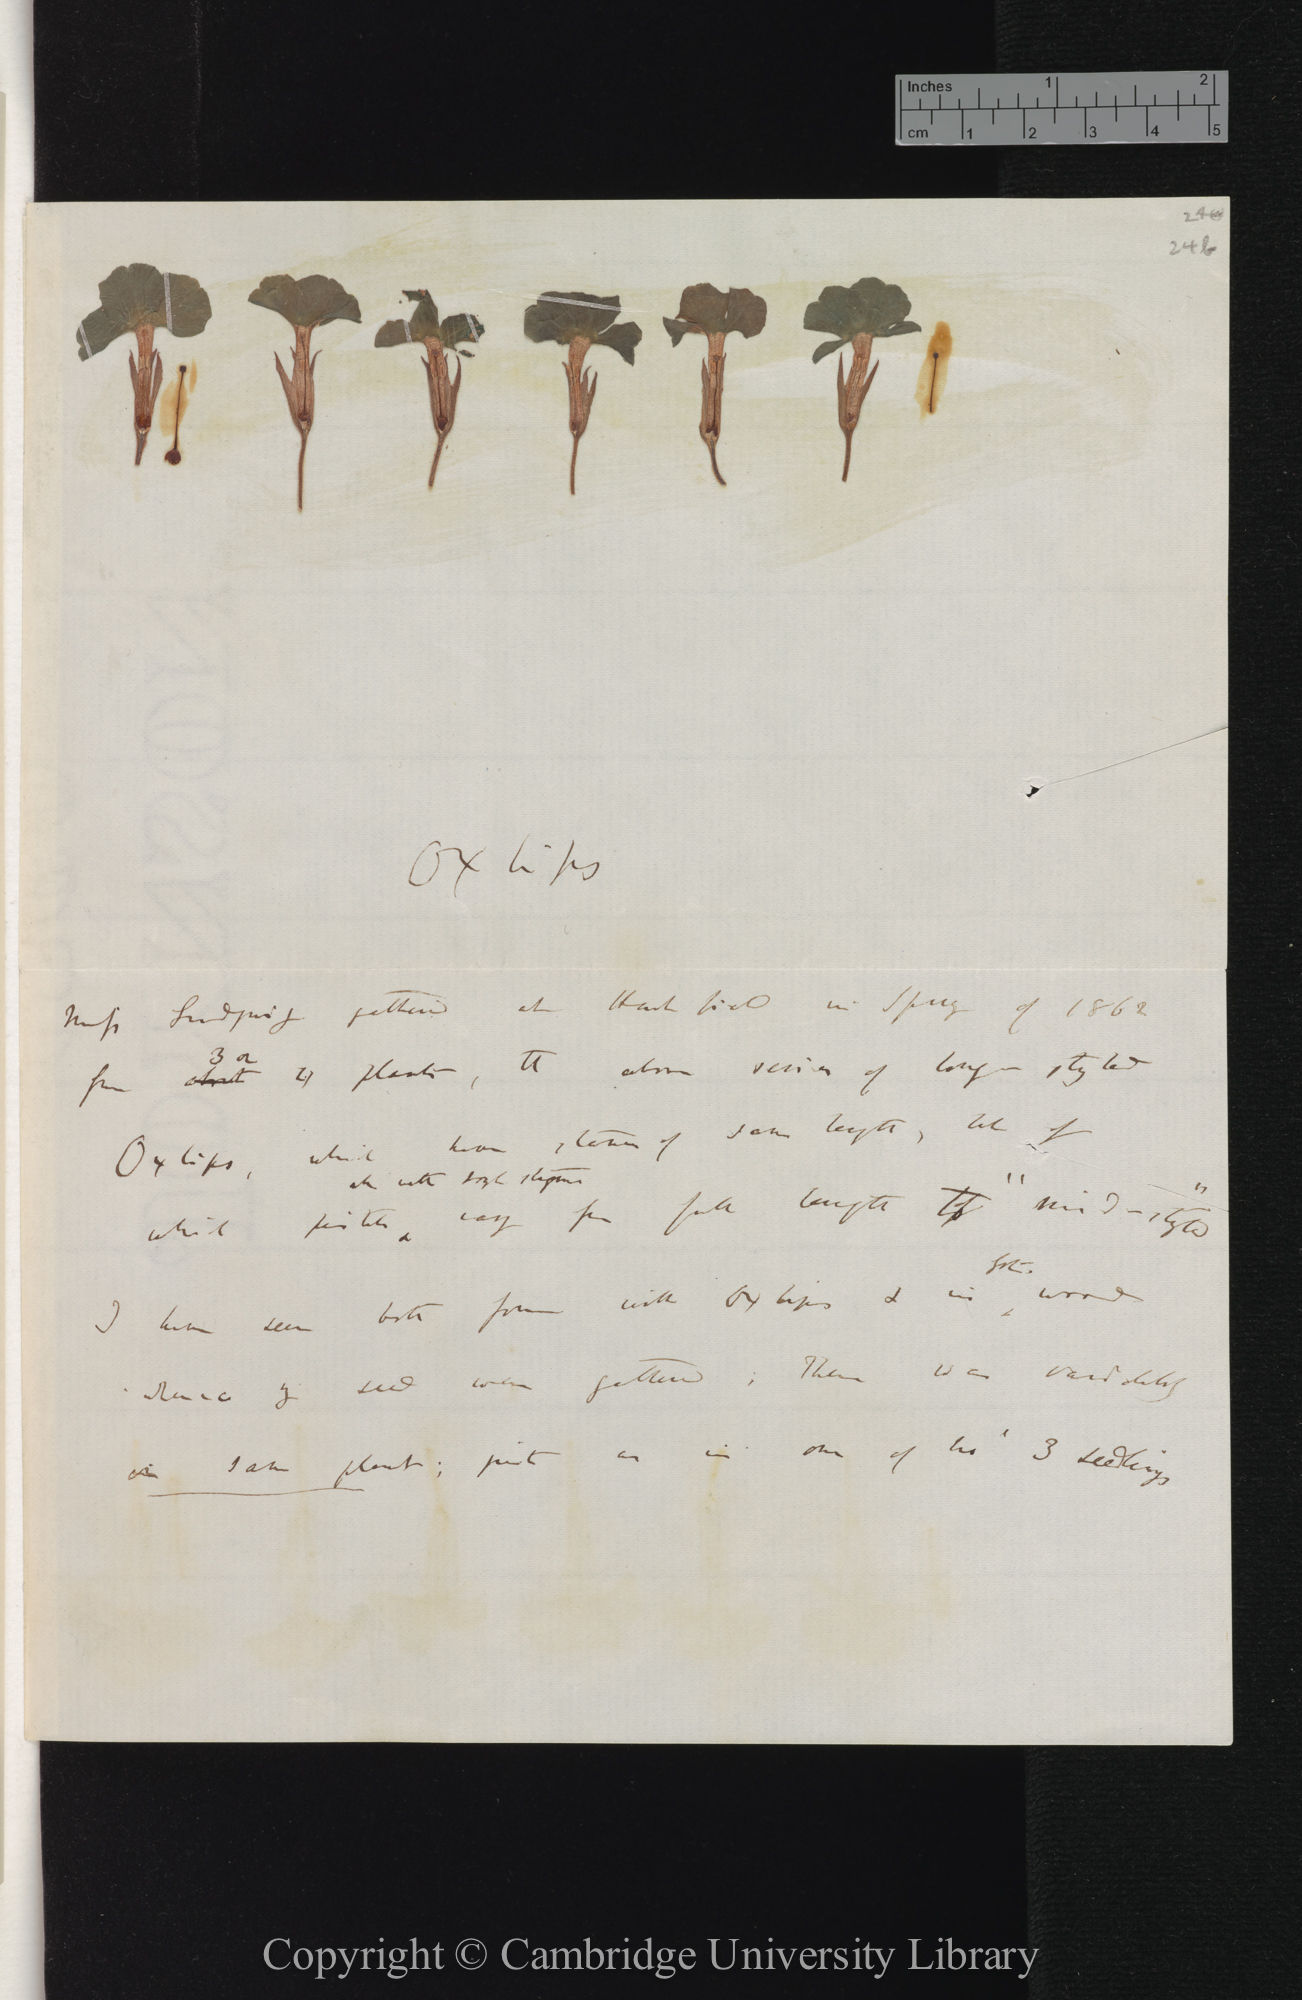 Inches 1 2
cm 1 2 3 4 5
24b
Oxlips
Miss gathered at Hartfield in Spring of 1862
from about 3 or 4 plants, the above series of long styled
Oxlips, which have stamens of same length, but of
which pistils vary from full length to "mid-styled"
I have seen both forms with Oxlips & in wood
whence seed were gathered; There was variability
in same plant; just as in one of his 3 seedlings
Copyright © Cambridge University Library